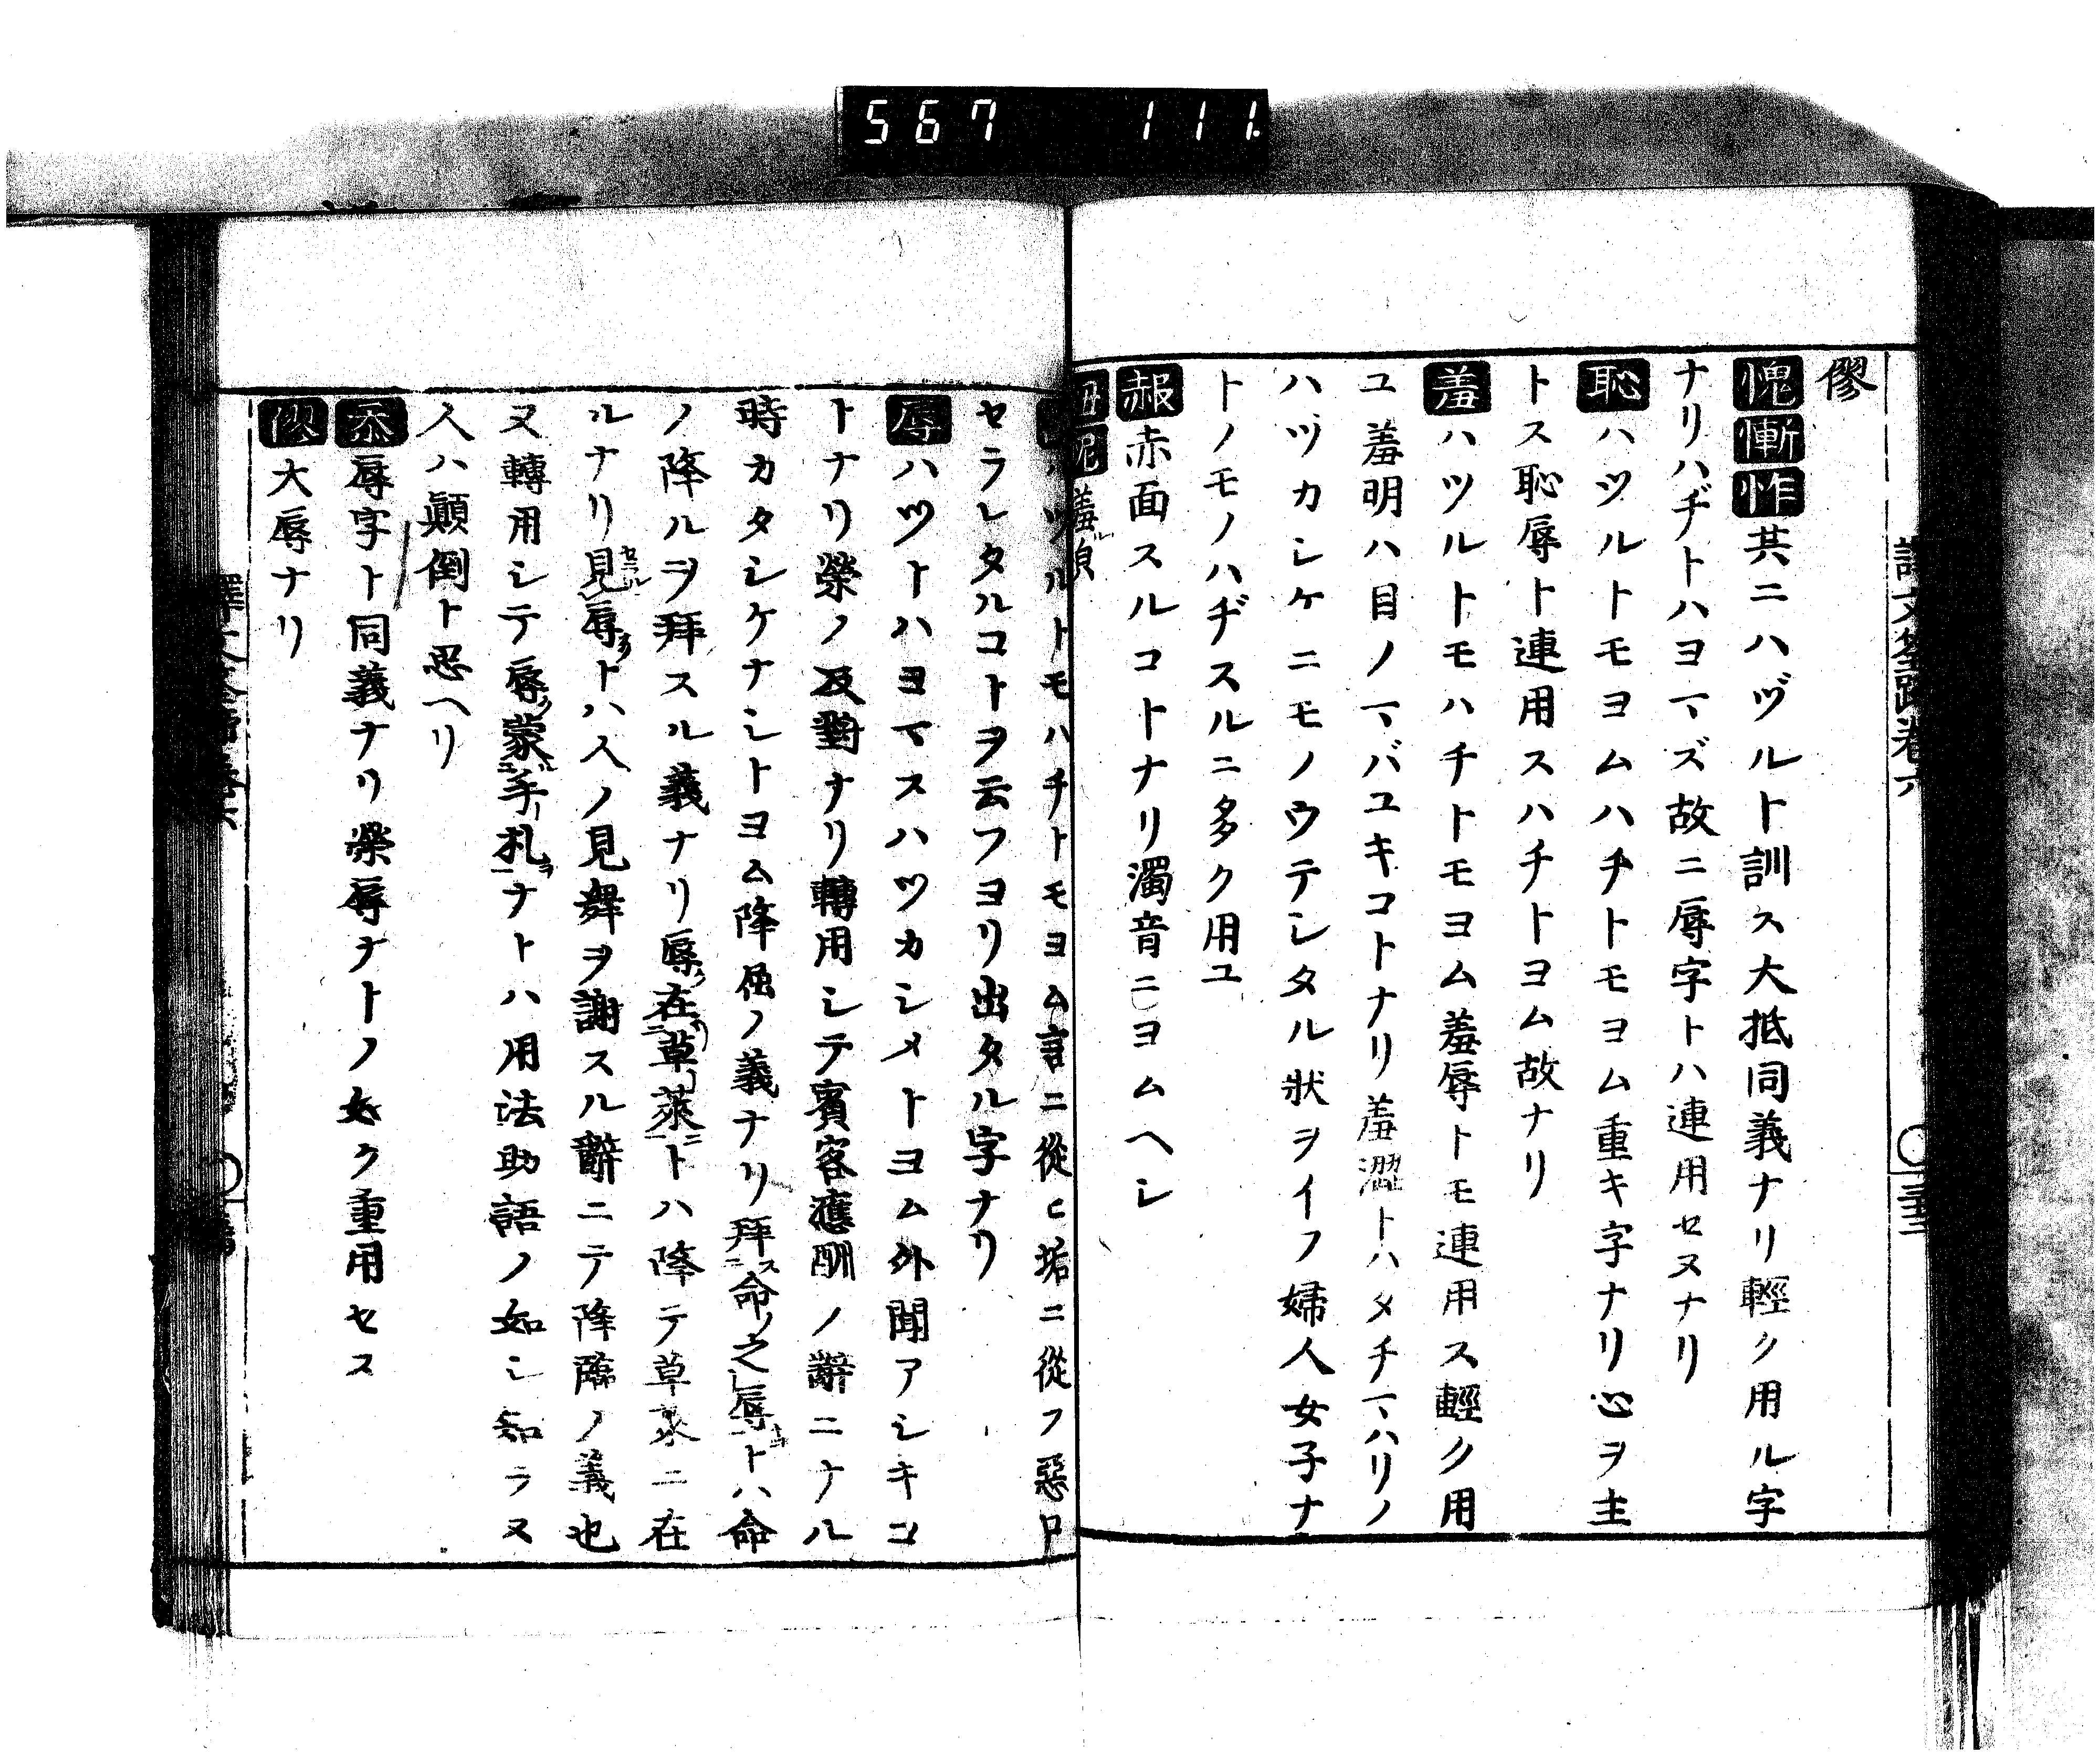 567 111
僇
愧慚怍共ニハヅルト訓ス大抵同義ナリ輕ク用ル字
ナリハヂトハヨマズ故ニ辱字トハ連用セヌナリ
恥ハツルトモヨムハチトモヨム重キ字ナリ心ヲ主
トス恥辱ト連用スハチトヨム故ナリ
羞ハツルトモハチトモヨム羞辱トモ連用ス輕ク用
ユ羞明ハ目ノマバユキコトナリ羞澀トハタチマハリノ
ハヅカシケニモノウテシタル狀ヲイフ婦人女子ナ
トノモノハヂスルニ多ク用ユ
赧赤面スルコトナリ濁音ニヨムヘシ
ハツルトモハチトモヨム言ニ從ヒ垢ニ從フ惡口
セラレタルコトヲ云フヨリ出タル字ナリ
辱ハヅトハヨマスハツカシメトヨム外聞アシキコ
トナリ榮ノ反對ナリ轉用シテ賓客應酬ノ辭ニナル
時カタシケナシトヨム降屈ノ義ナリ拜命之辱トハ命
ノ降ルヲ拜スル義ナリ辱在草萊トハ降テ草萊ニ在
ルナリ見辱トハ人ノ見舞ヲ謝スル辭ニテ降臨ノ義也
又轉用シテ辱蒙手札ナトハ用法助語ノ如シ知ラヌ
人ハ顚倒ト思ヘリ
忝辱字ト同義ナリ榮辱ナトノ如ク重用セス
僇大辱ナリ